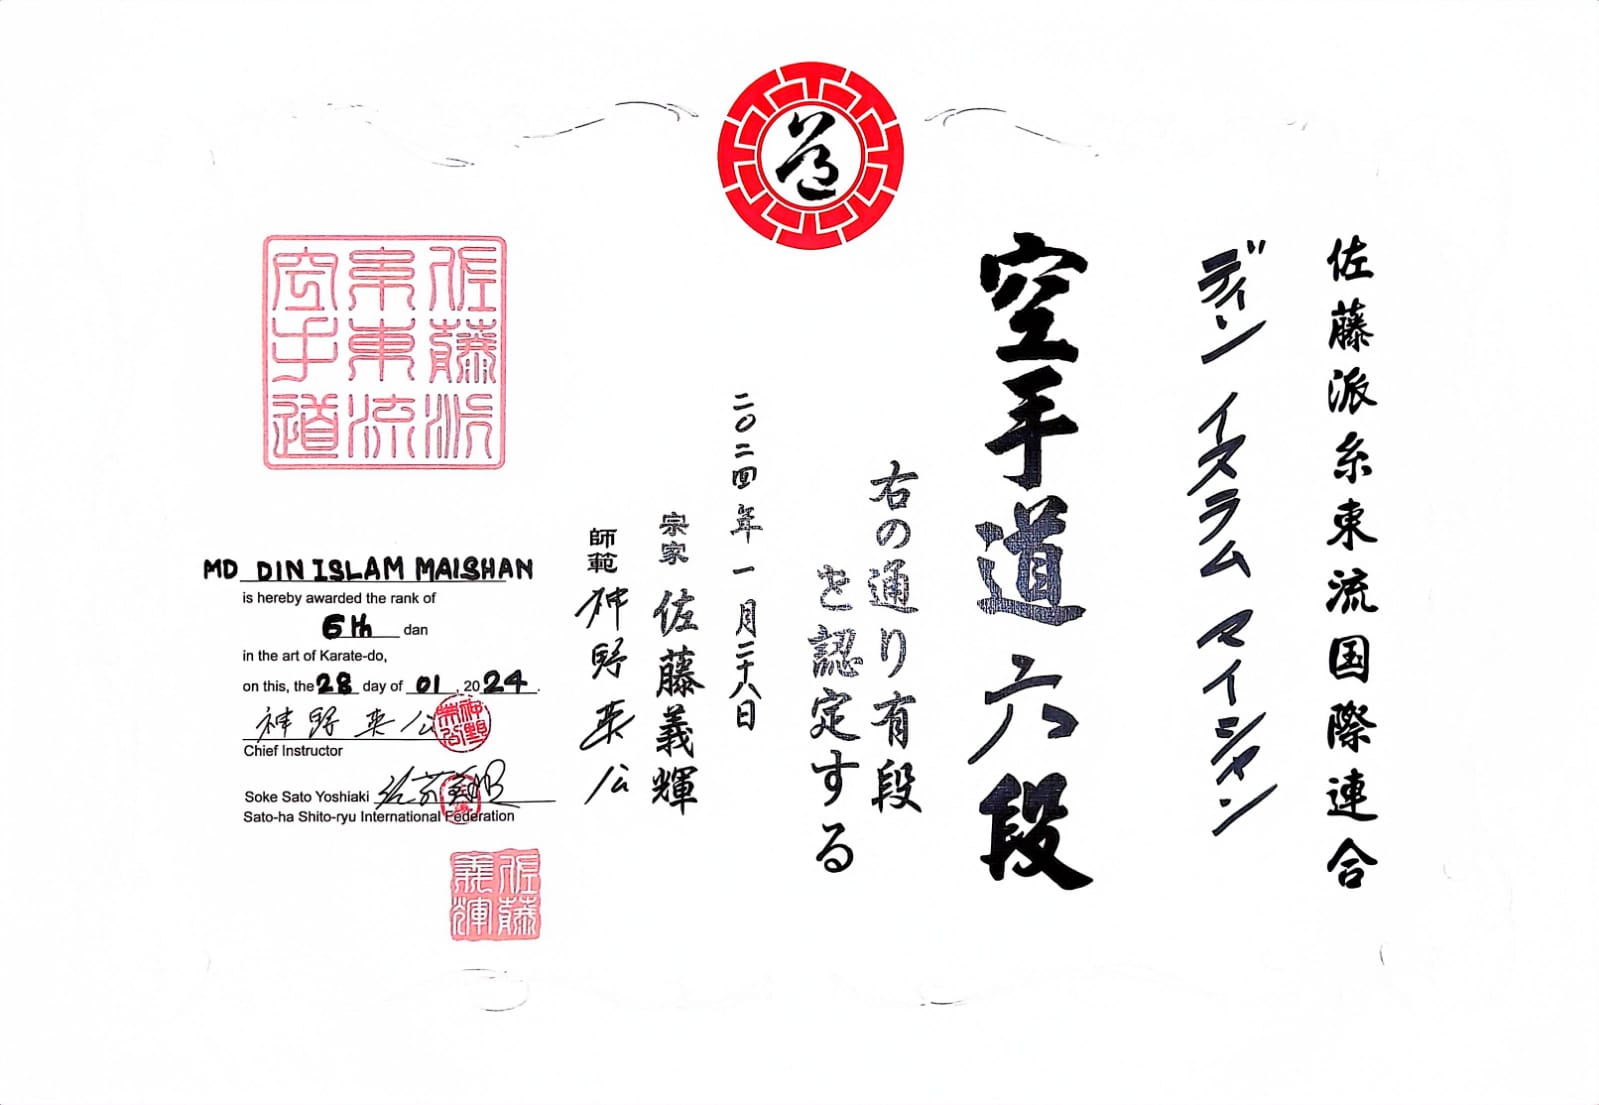 道
佐藤派糸東流国際連合
ディン イスラム マイシャン
空手道六段
右の通り有段
を認定する
二〇二四年一月二十八日
宗家 佐藤義輝
師範 神野英公
佐藤派
糸東流
空手道
MD DIN ISLAM MAISHAN
is hereby awarded the rank of
6th dan
in the art of Karate-do,
on this, the 28 day of 01, 2024.
神野英公
Chief Instructor
Soke Sato Yoshiaki 佐藤義輝
Sato-ha Shito-ryu International Federation
佐藤
義輝